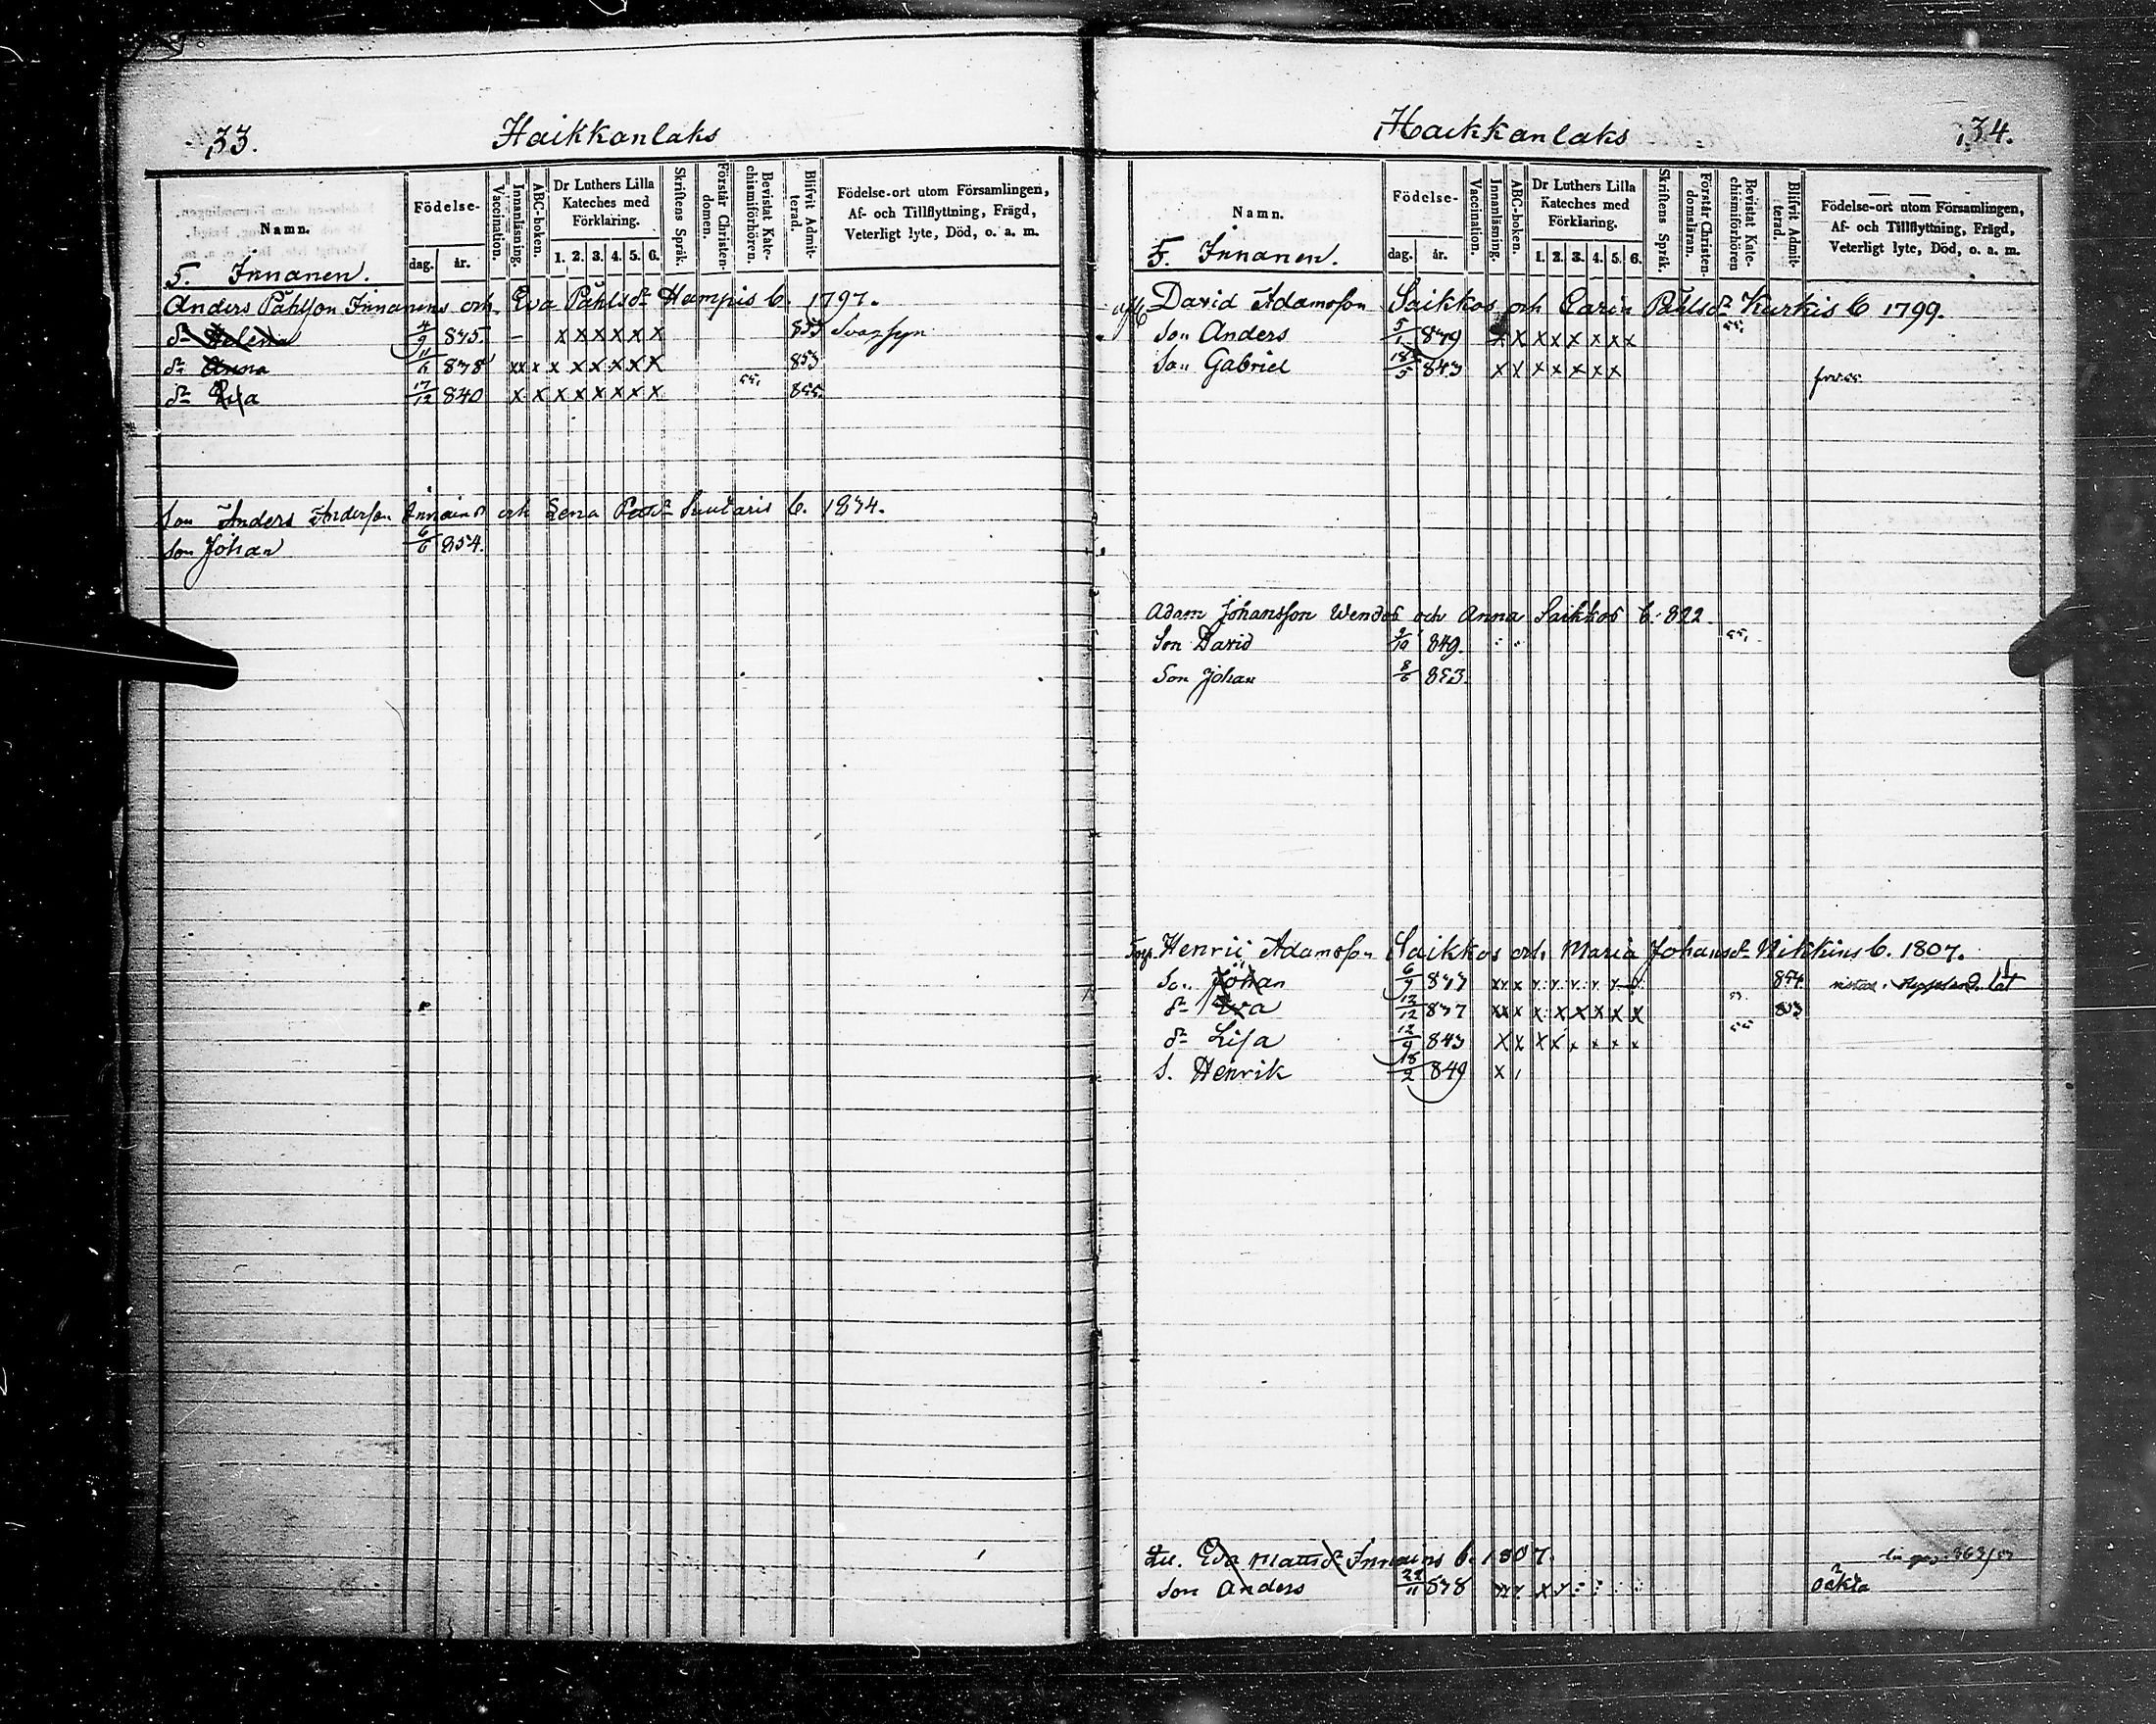 33.
Haikkanlaks
Namn.
Födelse-
dag.
år.
Vaccination.
Innanläsning.
ABC-boken.
Dr Luthers Lilla
Kateches med
Förklaring.
1. 2. 3. 4. 5. 6.
Skriftens Språk.
Förstår Christen-
domen.
Bevistat Kate-
chismiförhören.
Blifvit Admit-
terad.
Födelse-ort utom Församlingen,
Af- och Tillflyttning, Frägd,
Veterligt lyte, Död, o. a. m.
5. Innanen.
Anders Påhlson Innanens och Eva Påhlsdr Hampis b. 1797.
dr Helena 4/9 835 – x x x x x x 853
dr Anna 11/6 838 xx x x x x x x x 853
dr Lisa 17/12 840 x x x x x x x x 55. 855.
Son Anders Anderson och Lena Suutaris b. 1834.
Son Johan 6/6 854.
34.
Haikkanlaks
Namn.
Födelse-
dag.
år.
Vaccination.
Innanläsning.
ABC-boken.
Dr Luthers Lilla
Kateches med
Förklaring.
1. 2. 3. 4. 5. 6.
Skriftens Språk.
Förstår Christen-
domsläran.
Bevistat Kate-
chismiförhören
Blifvit Admit-
terad.
Födelse-ort utom Församlingen,
Af- och Tillflyttning, Frägd,
Veterligt lyte, Död, o. a. m.
5. Innanen.
David Adamsson Saikkos och Carin Påhlsdr Kurkis b 1799.
Son Anders 5/1 839 x x x x x x x x 55.
Son Gabriel 18/5 843 x x x x x x x
Adam Johansson Wendos och Anna Saikkos b. 822.
Son David 849. 55.
Son Johan 8/6 853.
Henric Adamsson Saikkos och Maria Johansdr Nikkins b. 1807.
Son Johan 6/9 837 854
dr Eva 12/12 837 xx x x x x x x x 53. 853
dr Lisa 12/9 843 x x x x x x x x 55
s. Henrik 18/2 849 x
Eva Mattsdr b. 1807.
Son Anders 22/11 838